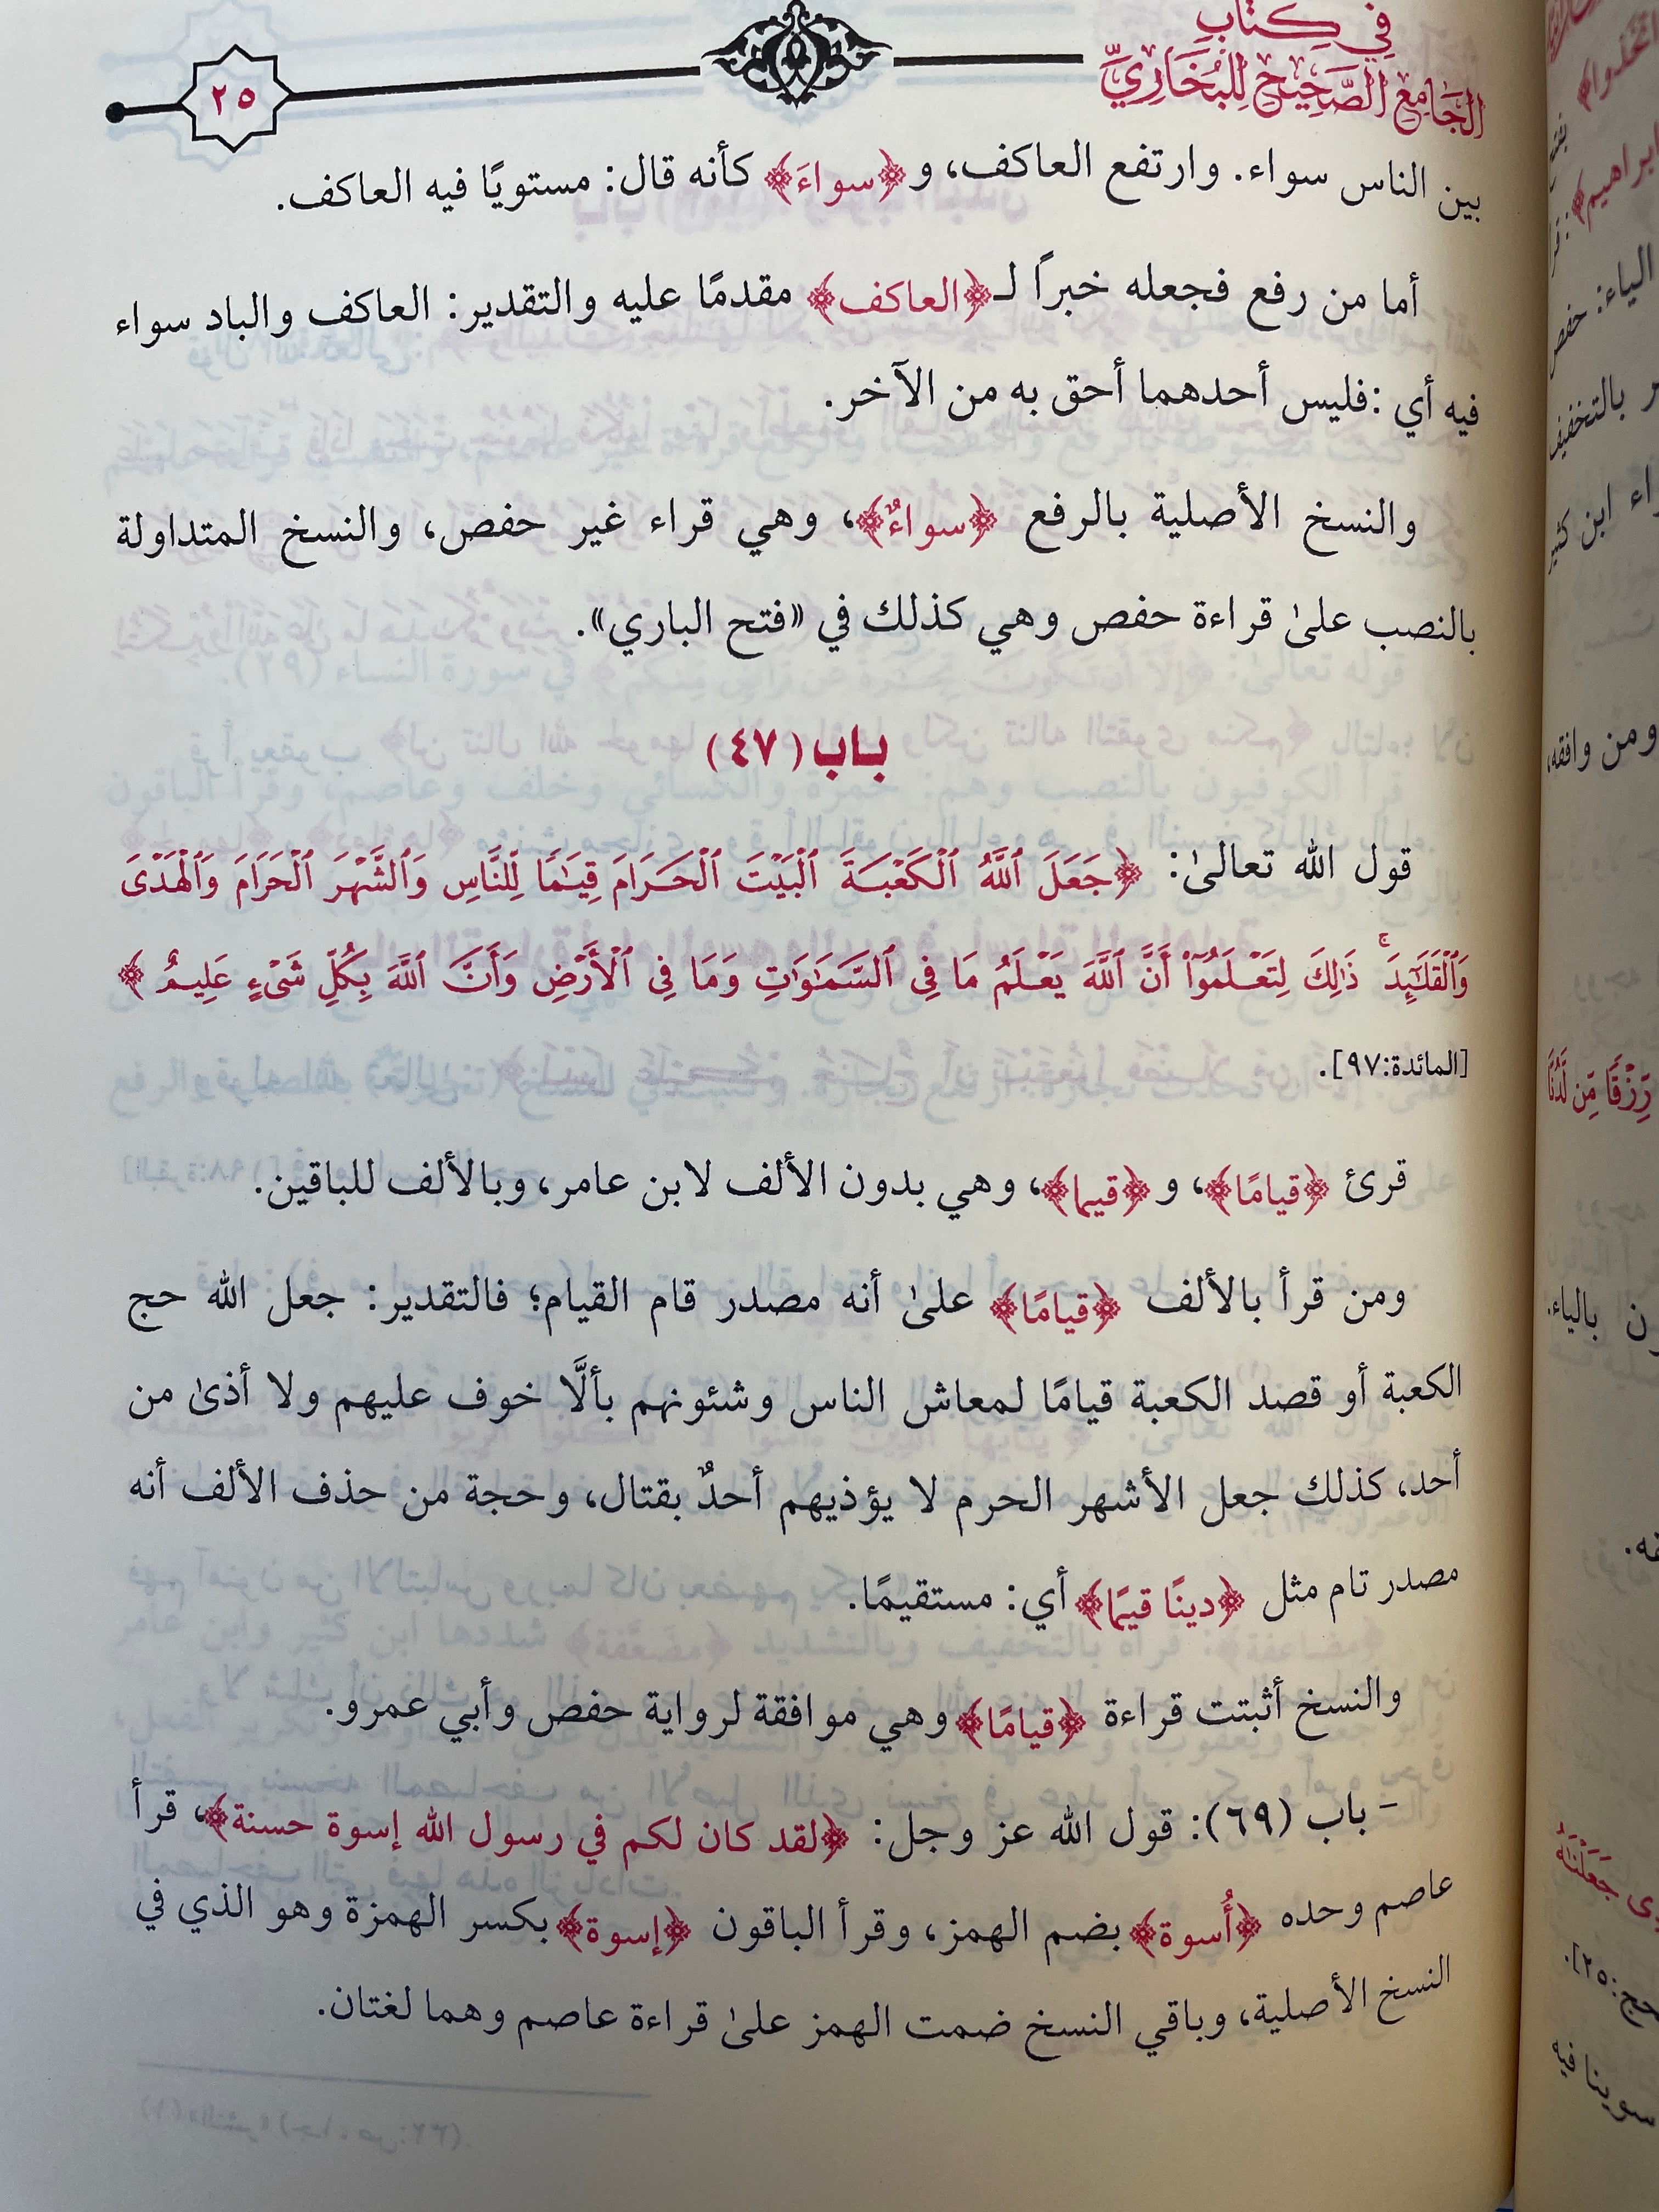 في كتاب
الجامع الصحيح للبخاري
٢٥
بين الناس سواء. وارتفع العاكف، و﴿سواءً﴾ كأنه قال: مستويًا فيه العاكف.
أما من رفع فجعله خبراً لـ﴿العاكف﴾ مقدمًا عليه والتقدير: العاكف والباد سواء
فيه أي :فليس أحدهما أحق به من الآخر.
والنسخ الأصلية بالرفع ﴿سواءٌ﴾، وهي قراء غير حفص، والنسخ المتداولة
بالنصب علىٰ قراءة حفص وهي كذلك في «فتح الباري».
باب (٤٧)
قول الله تعالىٰ: ﴿جَعَلَ ٱللَّهُ ٱلْكَعْبَةَ ٱلْبَيْتَ ٱلْحَرَامَ قِيَٰمًا لِّلنَّاسِ وَٱلشَّهْرَ ٱلْحَرَامَ وَٱلْهَدْىَ
وَٱلْقَلَٰٓئِدَ ۚ ذَٰلِكَ لِتَعْلَمُوٓا۟ أَنَّ ٱللَّهَ يَعْلَمُ مَا فِى ٱلسَّمَٰوَٰتِ وَمَا فِى ٱلْأَرْضِ وَأَنَّ ٱللَّهَ بِكُلِّ شَىْءٍ عَلِيمٌ ﴾
[المائدة:٩٧].
قرئ ﴿قيامًا﴾، و﴿قيما﴾، وهي بدون الألف لابن عامر، وبالألف للباقين.
ومن قرأ بالألف ﴿قيامًا﴾ علىٰ أنه مصدر قام القيام؛ فالتقدير: جعل الله حج
الكعبة أو قصد الكعبة قيامًا لمعاش الناس وشئونهم بألَّا خوف عليهم ولا أذىٰ من
أحد، كذلك جعل الأشهر الحرم لا يؤذيهم أحدٌ بقتال، وحجة من حذف الألف أنه
مصدر تام مثل ﴿دينًا قيمًا﴾ أي: مستقيمًا.
والنسخ أثبتت قراءة ﴿قيامًا﴾ وهي موافقة لرواية حفص وأبي عمرو.
- باب (٦٩): قول الله عز وجل: ﴿لقد كان لكم في رسول الله إسوة حسنة﴾، قرأ
عاصم وحده ﴿أُسوة﴾ بضم الهمز، وقرأ الباقون ﴿إسوة﴾ بكسر الهمزة وهو الذي في
النسخ الأصلية، وباقي النسخ ضمت الهمز علىٰ قراءة عاصم وهما لغتان.